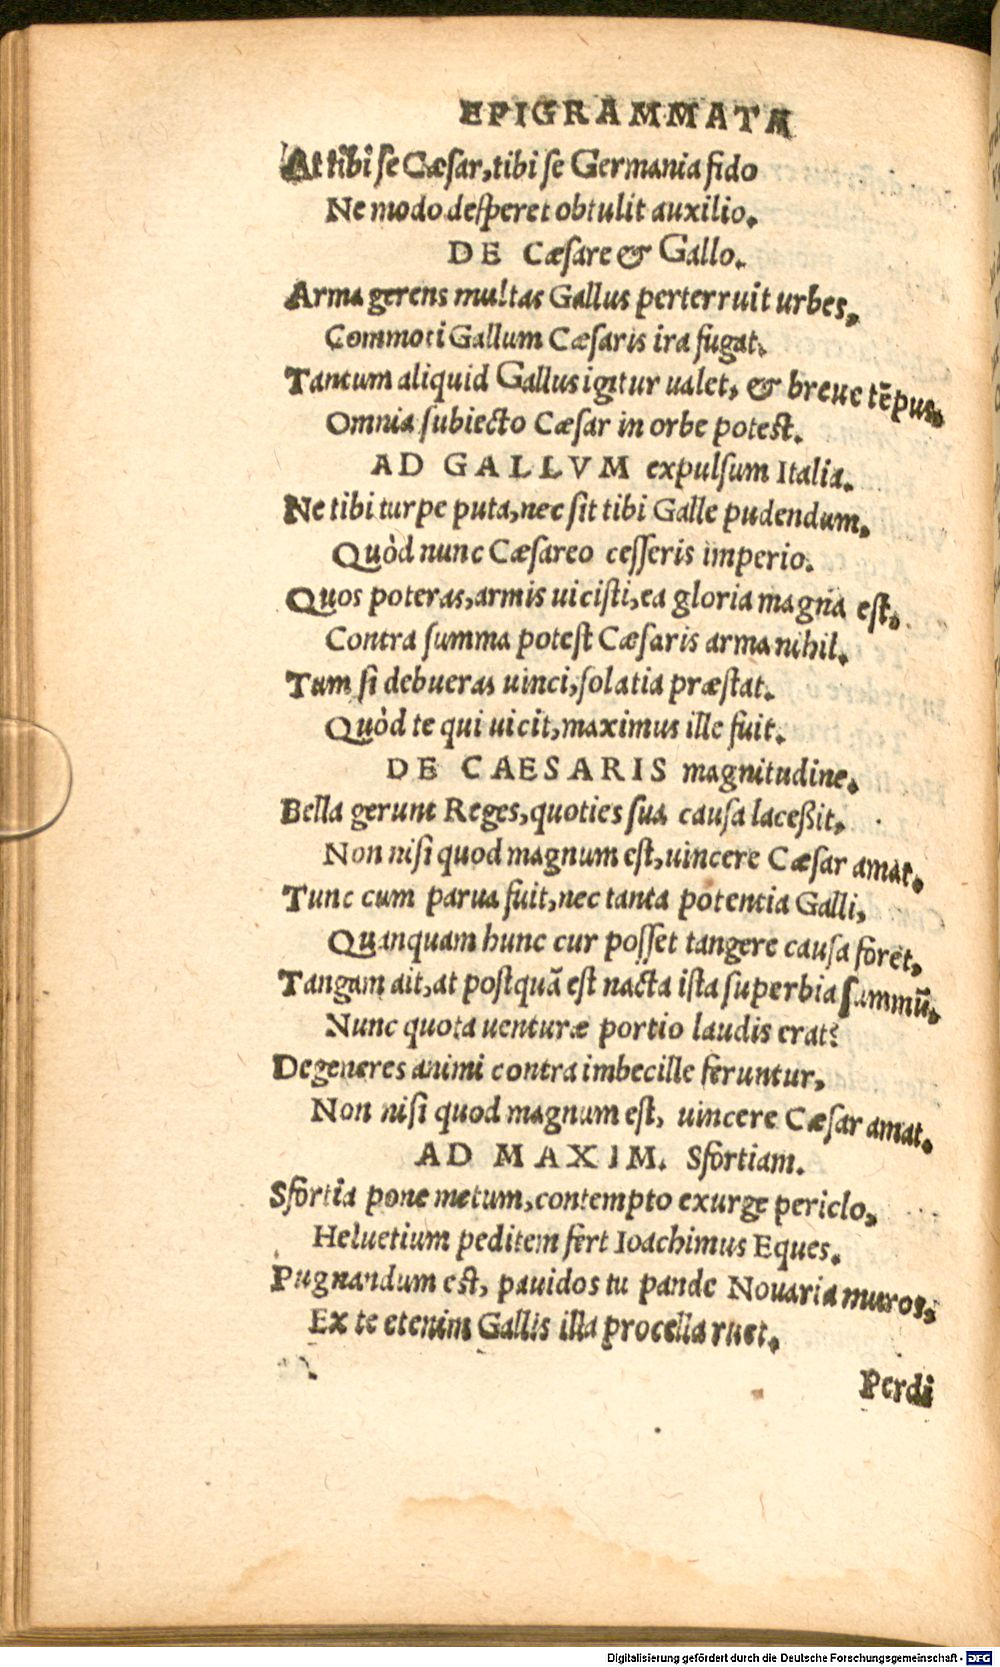 EPIGRAMMATA
At tibi se Cæsar, tibi se Germania fido
Ne modo desperet obtulit auxilio.
DE Cæsare & Gallo.
Arma gerens multas Gallus perterruit urbes,
Commoti Gallum Cæsaris ira fugat.
Tantum aliquid Gallus igitur ualet, & breue tēpus,
Omnia subiecto Cæsar in orbe potest.
AD GALLVM expulsum Italia.
Ne tibi turpe puta, nec sit tibi Galle pudendum,
Quòd nunc Cæsareo cesseris imperio.
Quos poteras, armis uicisti, ea gloria magna est,
Contra summa potest Cæsaris arma nihil.
Tum si debueras uinci, solatia præstat.
Quòd te qui uicit, maximus ille fuit.
DE CAESARIS magnitudine.
Bella gerunt Reges, quoties sua causa laceßit,
Non nisi quod magnum est, uincere Cæsar amat.
Tunc cum parua fuit, nec tanta potentia Galli,
Quanquam hunc cur posset tangere causa foret,
Tangam ait, at postquā est nacta ista superbia summū,
Nunc quota uenturæ portio laudis erat?
Degeneres animi contra imbecille feruntur,
Non nisi quod magnum est, uincere Cæsar amat.
AD MAXIM. Sfortiam.
Sfortia pone metum, contempto exurge periclo,
Heluetium peditem fert Ioachimus Eques.
Pugnandum est, pauidos tu pande Nouaria muros,
Ex te etenim Gallis illa procella ruet.
Perdi
Digitalisierung gefördert durch die Deutsche Forschungsgemeinschaft - DFG